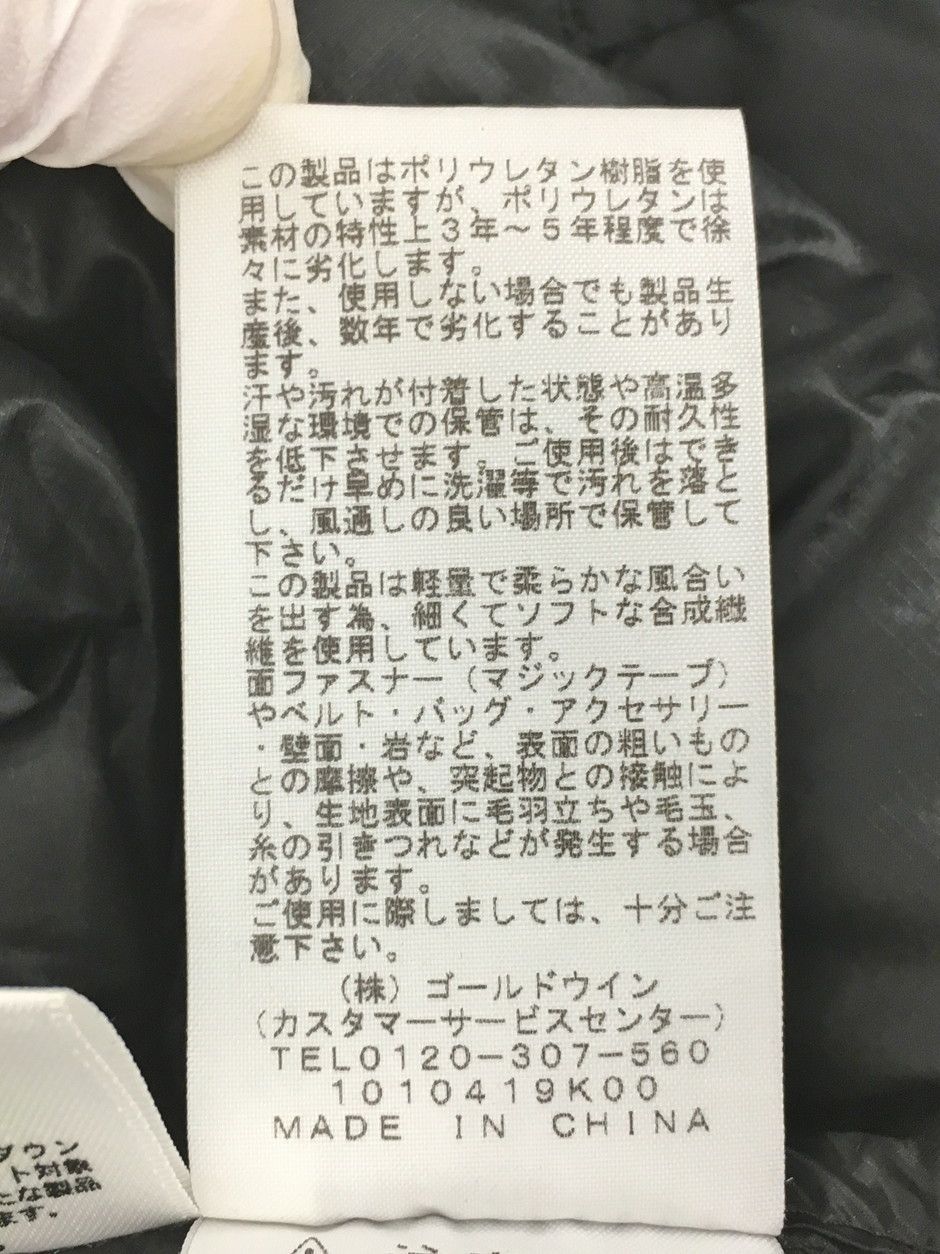 この製品はポリウレタン樹脂を使
用していますが、ポリウレタンは
素材の特性上3年～5年程度で徐
々に劣化します。
また、使用しない場合でも製品生
産後、数年で劣化することがあり
ます。
汗や汚れが付着した状態や高温多
湿な環境での保管は、その耐久性
を低下させます。ご使用後はでき
るだけ早めに洗濯等で汚れを落と
し、風通しの良い場所で保管して
下さい。
この製品は軽量で柔らかな風合い
を出す為、細くてソフトな合成繊
維を使用しています。
面ファスナー（マジックテープ）
やベルト・バッグ・アクセサリー
・壁面・岩など、表面の粗いもの
との摩擦や、突起物との接触によ
り、生地表面に毛羽立ちや毛玉、
糸の引きつれなどが発生する場合
があります。
ご使用に際しましては、十分ご注
意下さい。
（株）ゴールドウイン
（カスタマーサービスセンター）
TEL0120-307-560
1010419K00
MADE IN CHINA
ダウン
ト対象
な製品
ます。